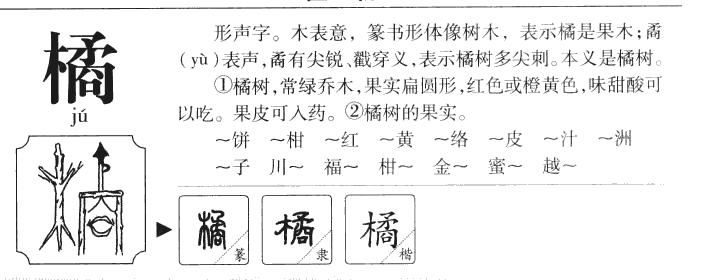 橘
jú
形声字。木表意，篆书形体像树木，表示橘是果木；矞
（yù）表声，矞有尖锐、戳穿义，表示橘树多尖刺。本义是橘树。
①橘树，常绿乔木，果实扁圆形，红色或橙黄色，味甜酸可
以吃。果皮可入药。②橘树的果实。
～饼 ～柑 ～红 ～黄 ～络 ～皮 ～汁 ～洲
～子 川～ 福～ 柑～ 金～ 蜜～ 越～
橘 篆 橘 隶 橘 楷